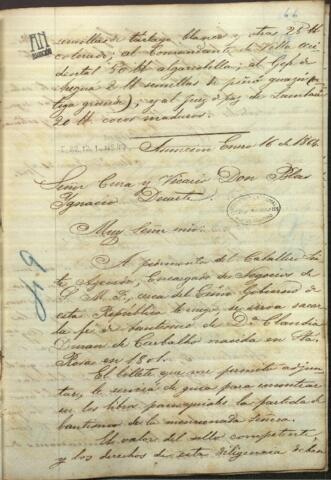 66
semillas de tártago blanco y otras 25 ℔
colorado; al Comandante de Villa Occi
dental 50 ℔ algarrobilla; al Gefe de
2 ℔ semillas de piñó
grande), y al Juez de paz de Lambaré
20 ℔ cocos maduros.
Asuncion Enero 16 de 1864.
Señor Cura y Vicario Don Blas
Ignacio Duarte.
Muy Señor mio:
A pedimento del Caballero
Encargado de Negocios de
S. M. F. cerca del Exmo Gobierno de
esta República tenga se sirva sacar
la fé de bautismo de Da. Claudia
Duran de Carbalho nacida en Sta.
Rosa en 1801.
El billete que me permito adjun
tar, le servirá de guia para encontrar
en los libros parroquiales la partida de
bautismo de la mencionada Señora.
El valor del sello competente,
y los derechos de esta diligencia